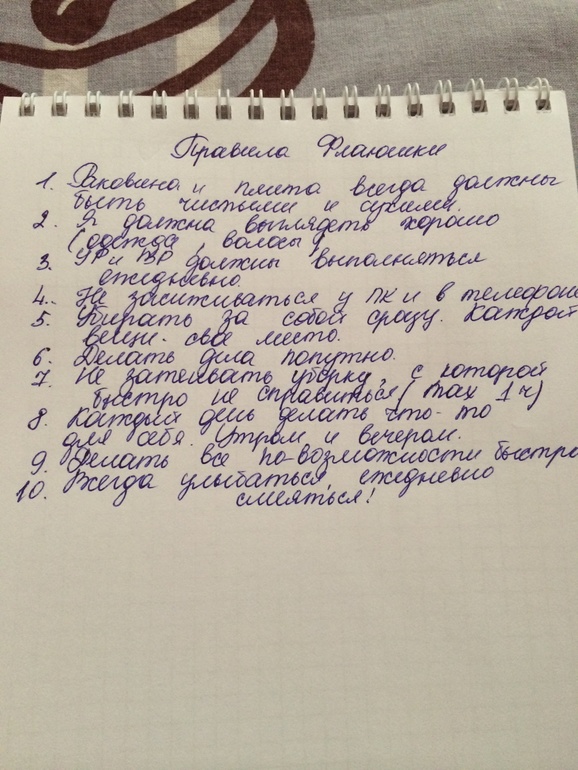 Правила Флаюшки
1. Раковина и плита всегда должны
быть чистыми и сухими.
2. Я должна выглядеть хорошо
(одежда, волосы)
3. УР и ВР должны выполняться
ежедневно.
4. Не засиживаться у ПК и в телефоне
5. Убирать за собой сразу. Каждой
вещи - свое место.
6. Делать дела попутно.
7. Не затевать уборку, с которой
быстро не справиться (max 1 ч)
8. Каждый день делать что-то
для себя. Утром и вечером.
9. Делать все по-возможности быстро
10. Всегда улыбаться, ежедневно
смеяться!